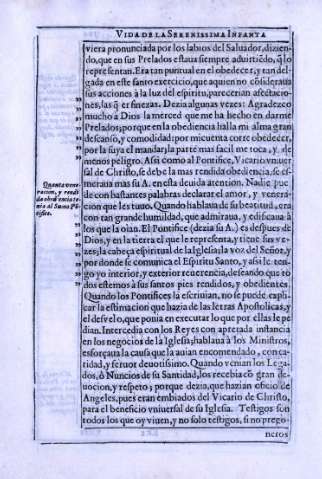 VIDA DE LA SERENISSIMA INFANTA
viera pronunciada por los labios del Saluador, dizien-
do, que en sus Prelados estaua siempre aduirtiẽdo, q̃ lo
representan. Era tan puntual en el obedecer, y tan del-
gada en este santo exercicio, que aquien no cõsideraua
sus acciones à la luz del espiritu, parecerian afectacio-
nes, las q̃ eran finezas. Dezia algunas vezes: Agradezco
mucho à Dios la merced que me ha hecho en darme
Prelados; porque en la obediencia halla mi alma gran
descanso, y comodidad: por mi cuenta corre obedecer,
por la suya el mandar; la parte mas facil me toca, y de
menos peligro. Assi como al Pontifice, Vicario vniuer
sal de Christo, se debe la mas rendida obediencia, se es-
meraua mas su A. en esta deuida atencion. Nadie pue
de con bastantes palabras declarar el amor, y venera-
cion que les tuuo. Quando hablaua de su beatitud, era
con tan grande humildad, que admiraua, y edificaua à
los que la oìan. El Pontifice (dezia su A.) es despues de
Dios, y en la tierra el que le representa, y tiene sus ve-
zes; la cabeça espiritual de la Iglesia; la voz del Señor, y
por donde se comunica el Espiritu Santo, y asi le ten-
go yo interior, y exterior reuerencia, deseando que to
dos estemos à sus santos pies rendidos, y obedientes.
Quando los Pontifices la escriuian, no se puede expli-
car la estimacion que hazia de las letras Apostolicas, y
el desvelo, que ponia en executar lo que por ellas le pe
dian. Intercedia con los Reyes con apretada instancia
en los negocios de la Iglesia; hablaua à los Ministros,
esforçaua la causa que la auian encomendado, con ca-
ridad, y feruor deuotissimo. Quando venian los Lega-
dos, ò Nuncios de su Santidad, los recebia cõ gran de-
uocion, y respeto; porque dezia, que hazian oficio de
Angeles, pues eran embiados del Vicario de Christo,
para el beneficio vniuersal de su Iglesia. Testigos son
todos los que oy viuen, y no solo testigos, si no prego-
neros
Quanta vene-
racion, y rendi
da obediencia te-
nia al Sumo Põ
tifice.